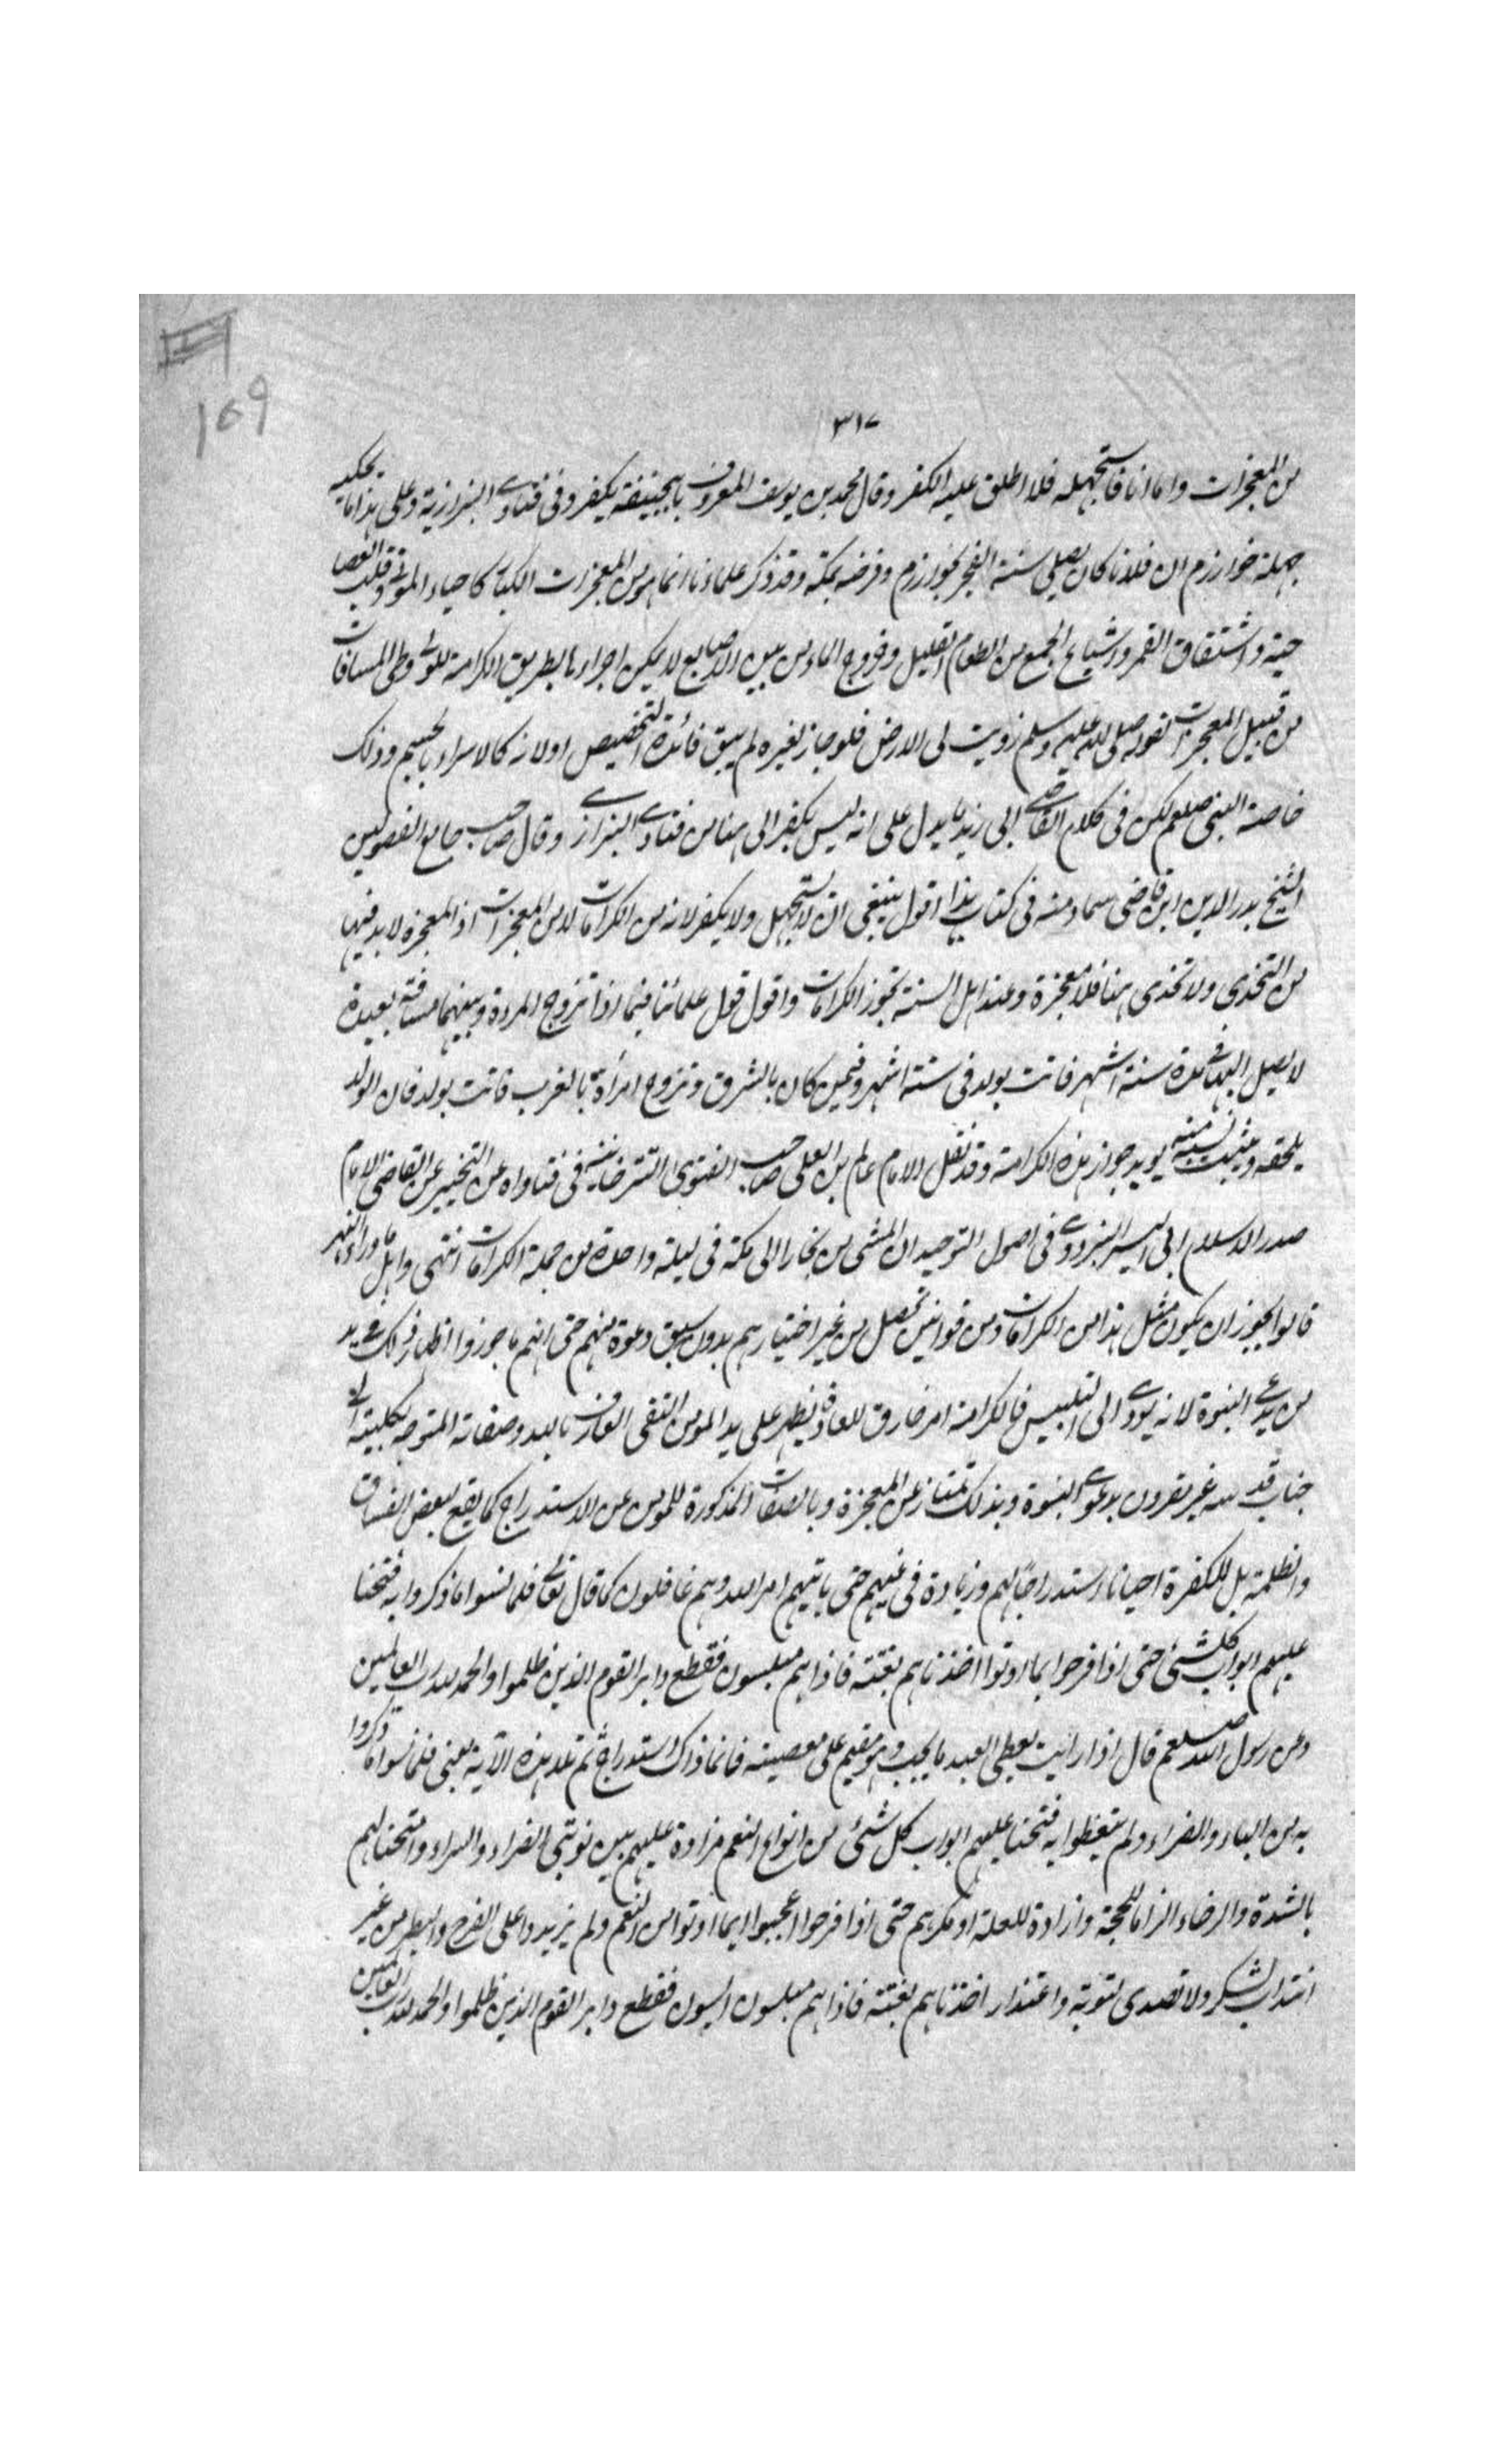 169
٣١٧
من المعجزات واما انا فاستجهله فلا اطلق عليه الكفر وقال محمد بن يوسف المعروف بابيحنيفة يكفر وفى فتاوى البزازية وعلى هذا ما يحكيه
جهلة خوارزم ان فلانا كان يصلى سنة الفجر بخوارزم وفرضه بمكة وقد ذكر علماءنا انما هو من المعجزات الكبار كاحياء الموتى وقلب العصا
حية وانشقاق القمر واشباع الجمع من الطعام القليل وخروج الماء من بين الاصابع لا يمكن اجراءها بطريق الكرامة للولى وطى المسافات
من قبيل المعجزات لقوله صلى الله عليه وسلم زويت لى الارض فلو جاز لغيره لم يبق فائدة التخصيص او لانه كالاسراء بالجسم وذلك
خاصة النبى صلعم لكن فى كلام القاضى ابى زيد ما يدل على انه ليس بكفر الى هنا من فتاوى البزازى وقال صاحب جامع الفصولين
الشيخ بدر الدين ابن قاضى سماونه فى كتابه هذا اقول ينبغى ان لا يستجهل ولا يكفر لانه من الكرامات لا من المعجزات اذ المعجزة لا بد فيها
من التحدى ولا تحدى هنا فلا معجزة وعند اهل السنة تجوز الكرامات واقول قول علمائنا فيما اذا تزوج المراة وبينهما مسافة بعيدة
لا يصل اليها فى مدة ستة اشهر فاتت بولد فى ستة اشهر وفيمن كان بالشرق وتزوج امرأة بالغرب فاتت بولد فان الولد
يلحقه ويثبت نسبه منه يويد جواز هذه الكرامة وقد نقل الامام عالم بن العلى صاحب الفتوى التترخانية فى فتاواه عن التخيير عن القاضى الامام
صدر الاسلام ابى اليسر البزدوى فى اصول التوحيد ان المشى من بخارا الى مكة فى ليلة واحدة من جملة الكرامات انتهى واهل ما وراء النهر
قالوا يجوز ان يكون مثل هذا من الكرامات ومن قوانين تحصل من غير اختيارهم بدون سبق دعوة منهم حتى انهم ما جوزوا اظهار ذلك على يد
من يدعى النبوة لانه يودى الى التلبيس فالكرامة امر خارق للعادة يظهر على يد المومن التقى العارف بالله وصفاته المتوجه بكليته الى
جناب قدسه غير مقرون بدعوى النبوة وبذلك تمتاز عن المعجزة وبالصفات المذكورة للمومن عن الاستدراج كما يقع لبعض الفساق
والظلمة بل للكفرة احيانا استدراجا لهم وزيادة فى غيهم حتى ياتيهم امر الله وهم غافلون كما قال تعالى فلما نسوا ما ذكروا به فتحنا
عليهم ابواب كل شئ حتى اذا فرحوا بما اوتوا اخذناهم بغتة فاذا هم مبلسون فقطع دابر القوم الذين ظلموا والحمد لله رب العالمين
وعن رسول الله صلعم قال اذا رايت يعطى العبد ما يحب وهو مقيم على معصيته فانما ذاك استدراج ثم تلا هذه الآية يعنى فلما نسوا ما ذكروا
به من الباساء والضراء ولم يتعظوا به فتحنا عليهم ابواب كل شئ من انواع النعم مزاوة عليهم بين نوبتى الضراء والسراء وامتحنا لهم
بالشدة والرخاء الزاما للحجة وازادة للعلة او مكرهم حتى اذا فرحوا اعجبوا بما اوتوا من النعم ولم يزيدوا على الفرح والبطر من غير
انتداب لشكر ولا تصدى لتوبة واعتذار اخذناهم بغتة فاذا هم مبلسون ايسون فقطع دابر القوم الذين ظلموا والحمد لله رب العالمين